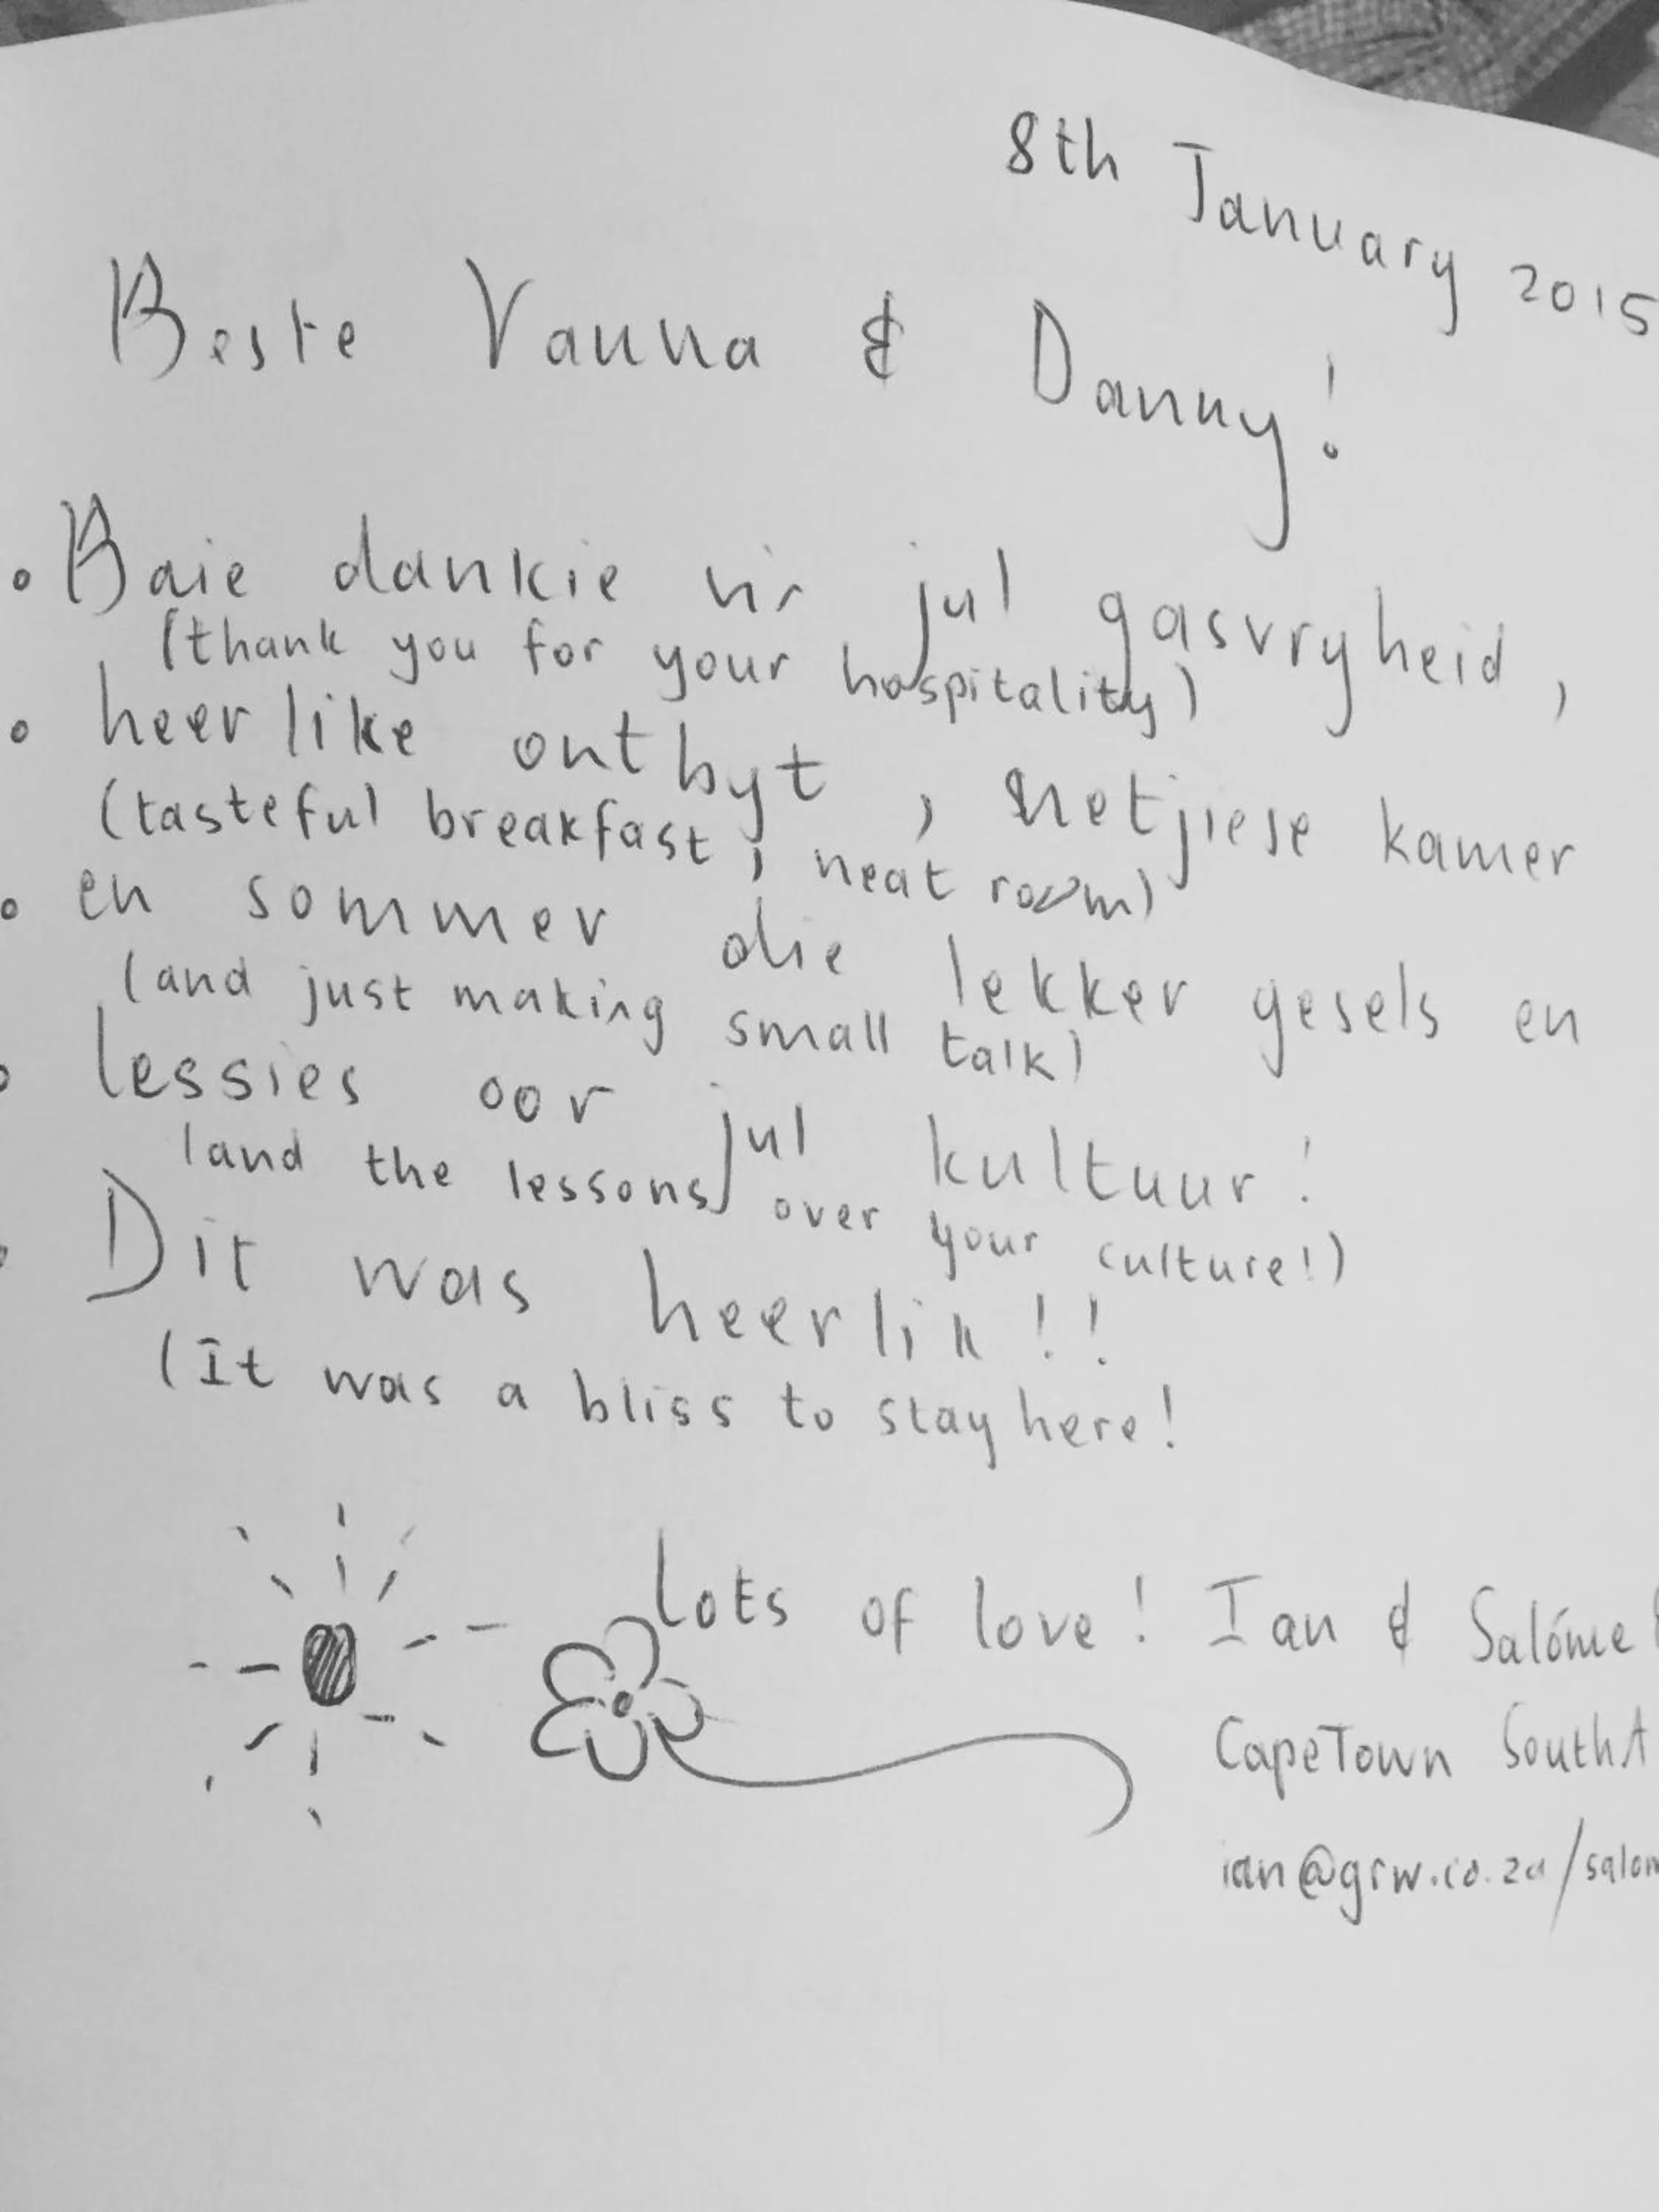 8th January 2015
Beste Vanna & Danny!
• Baie dankie vir jul gasvryheid,
(thank you for your hospitality)
• heerlike ontbyt, netjiese kamer
(tasteful breakfast, neat room)
• en sommer die lekker gesels en
(and just making small talk)
• lessies oor jul kultuur!
(and the lessons over your culture!)
• Dit was heerlik!!
(It was a bliss to stay here!
Lots of love! Ian & Salóme
CapeTown South A
ian@grw.co.za/salom